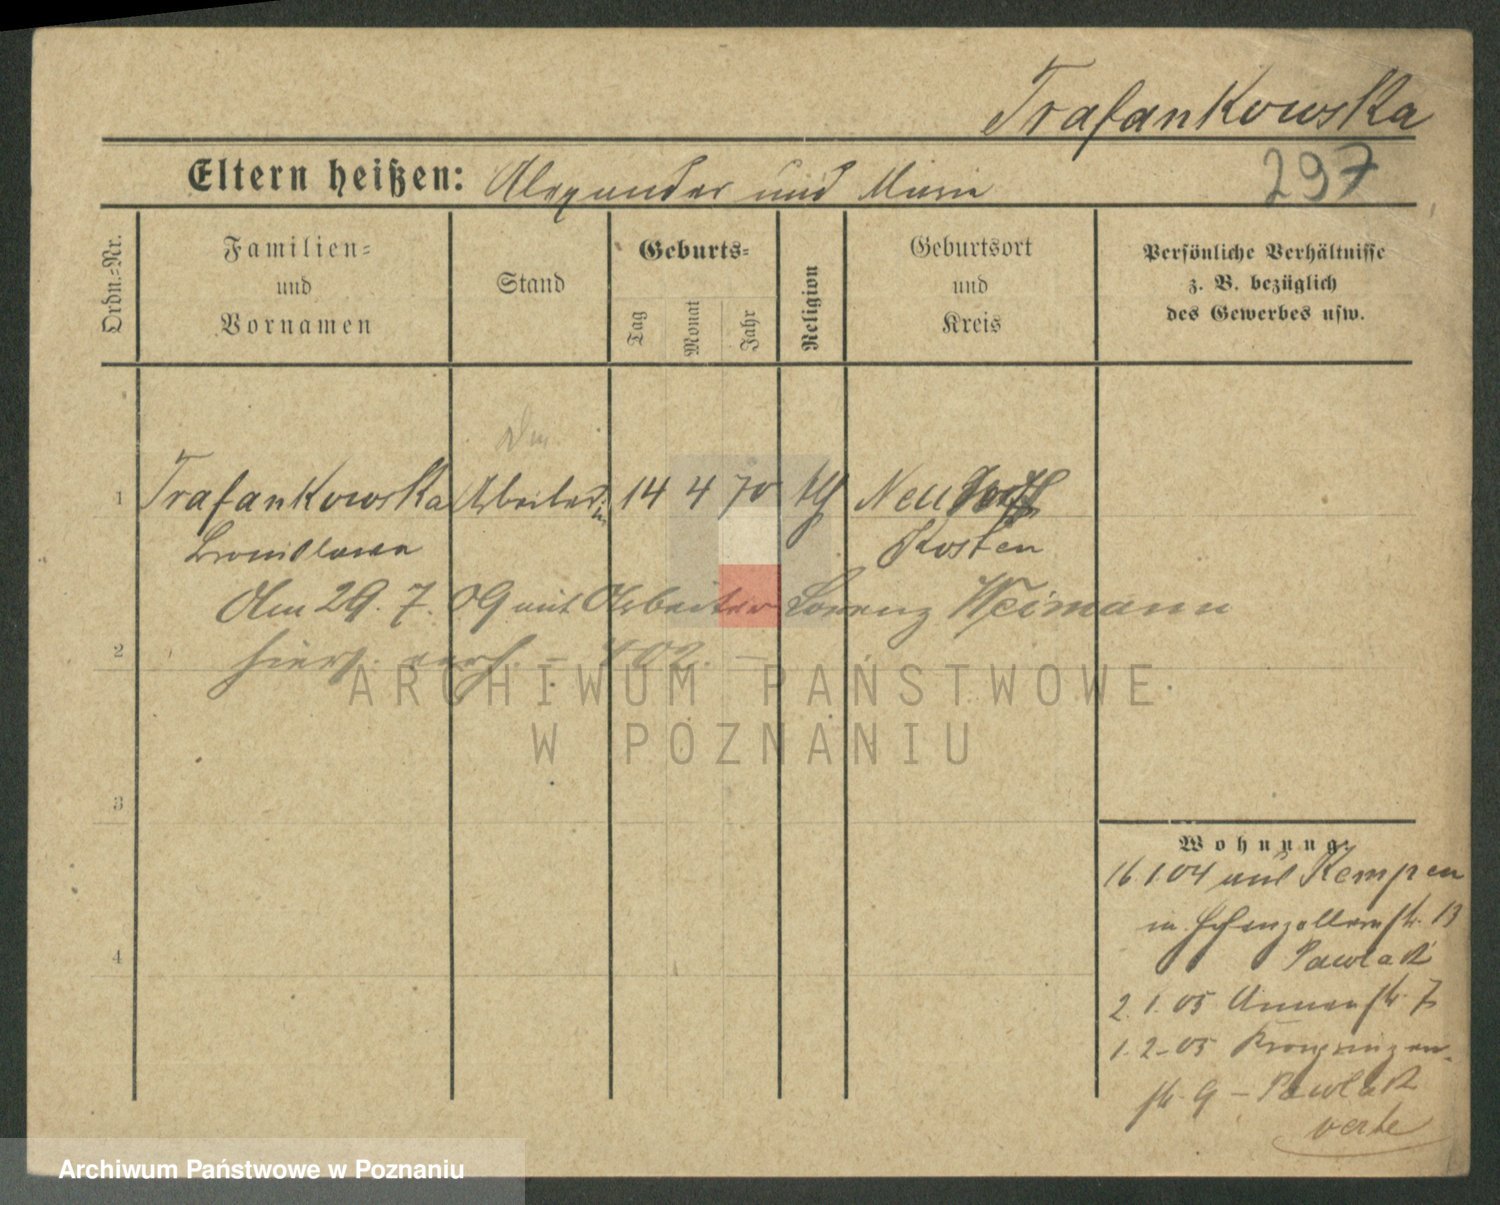 Trafankowska
297
Eltern heißen: Alexander und Marie
Ordn.=Nr.
Familien=
und
Vornamen
Stand
Geburts=
Tag
Monat
Jahr
Religion
Geburtsort
und
Kreis
Persönliche Verhältnisse
z. B. bezüglich
des Gewerbes usw.
1 Trafankowska Arbeiterin 14 4 70 Neudorf
Bronislawa Kosten
Am 29. 7. 09 mit Arbeiter Lorenz Weimann
2 hiers. verh. – 402. –
3
4
Wohnung:
16.1.04 aus Kempen
n. Hohenzollernstr. 13
Pawlak
2.1.05 Annenstr. 7
1.2.05 Kronprinzen-
str. 9 – Pawlak
verte
ARCHIWUM PAŃSTWOWE
W POZNANIU
Archiwum Państwowe w Poznaniu